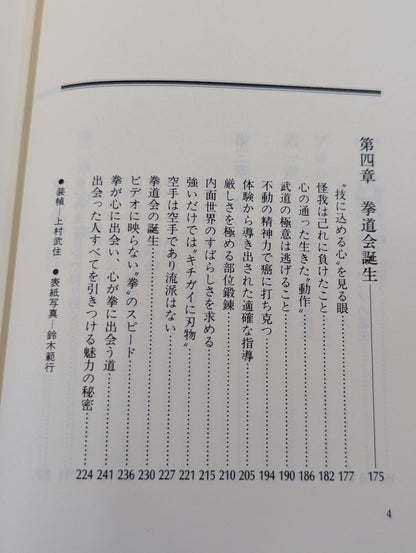 第四章 拳道会誕生 175
〝技に込める心〟を見る眼 177
怪我は己れに負けたこと 182
心の通った生きた〝動作〟 186
武道の極意は逃げること 190
不動の精神力で癌に打ち克つ 194
体験から導き出された適確な指導 205
厳しさを極める部位鍛錬 210
内面世界のすばらしさを求める 215
強いだけでは〝キチガイに刃物〟 221
空手は空手であり流派はない 227
拳道会の誕生 230
ビデオに映らない〝拳〟のスピード 236
拳が心に出会い、心が拳に出会う道 241
出会った人すべてを引きつける魅力の秘密 224
●装幀―上村武住 ●表紙写真―鈴木範行
4